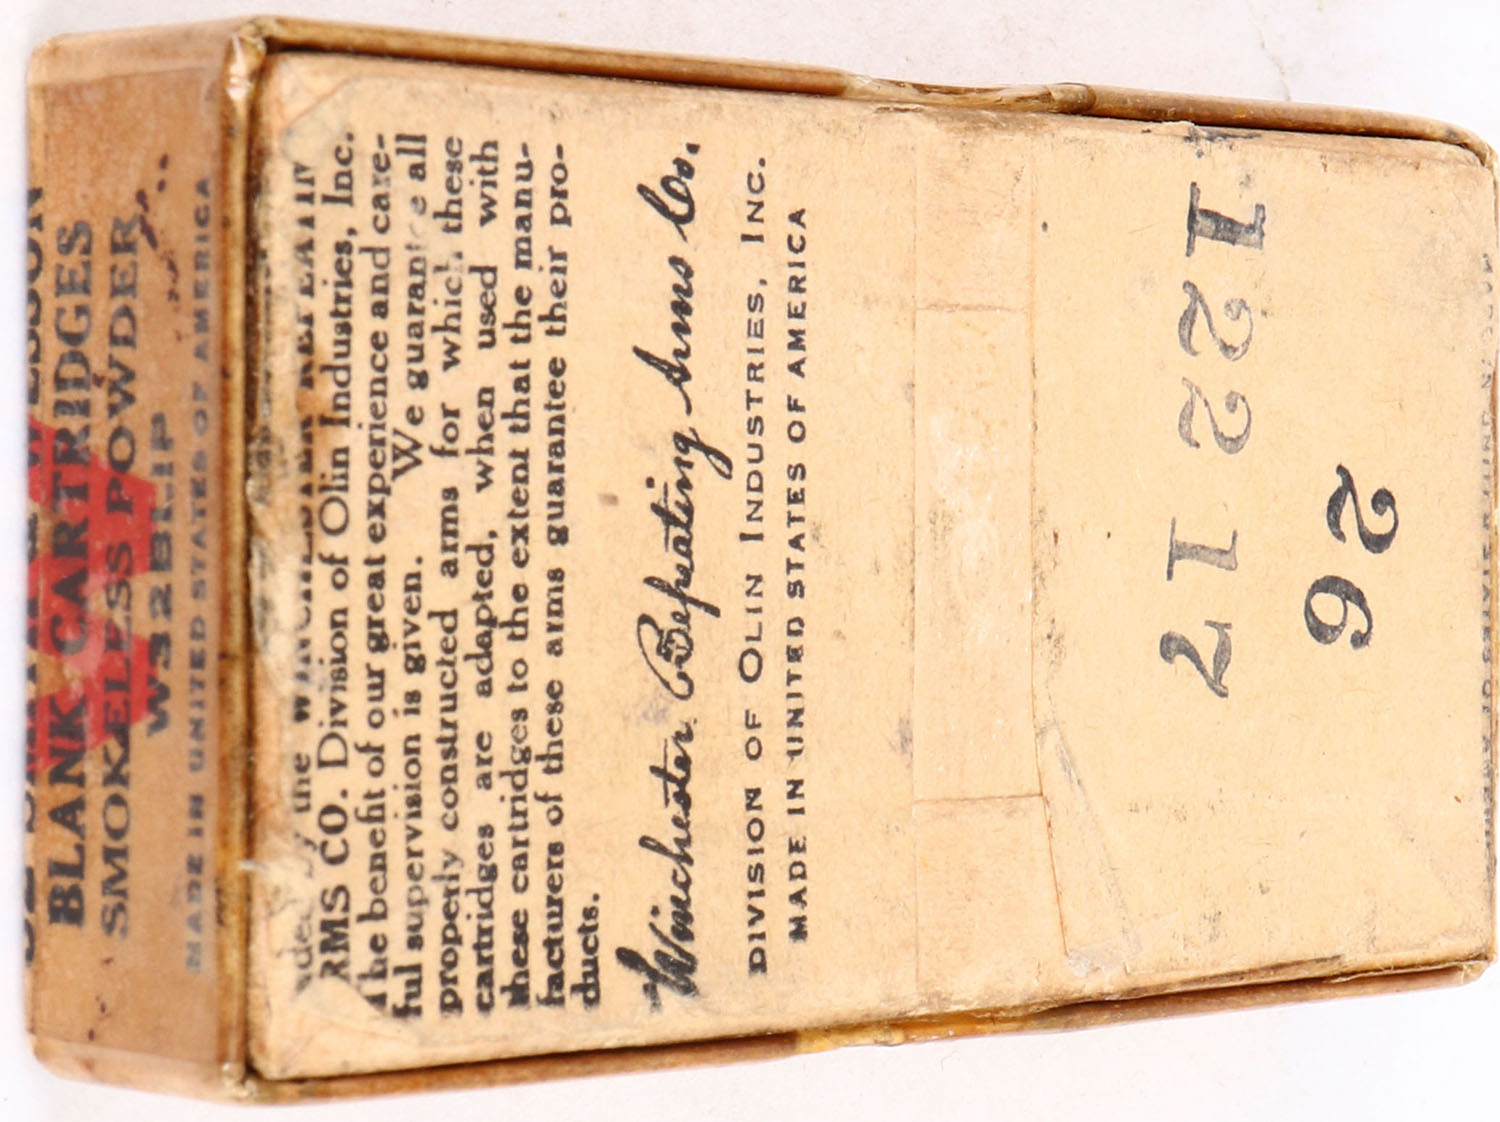 32 SMITH & WESSON
BLANK CARTRIDGES
SMOKELESS POWDER
W32BLIP
MADE IN UNITED STATES OF AMERICA
the WINCHESTER REPEATIN
RMS CO. Division of Olin Industries, Inc.
The benefit of our great experience and care-
ful supervision is given. We guarantee all
properly constructed arms for which these
cartridges are adapted, when used with
these cartridges to the extent that the manu-
facturers of these arms guarantee their pro-
ducts.
Winchester Repeating Arms Co.
DIVISION OF OLIN INDUSTRIES, INC.
MADE IN UNITED STATES OF AMERICA
122217
26